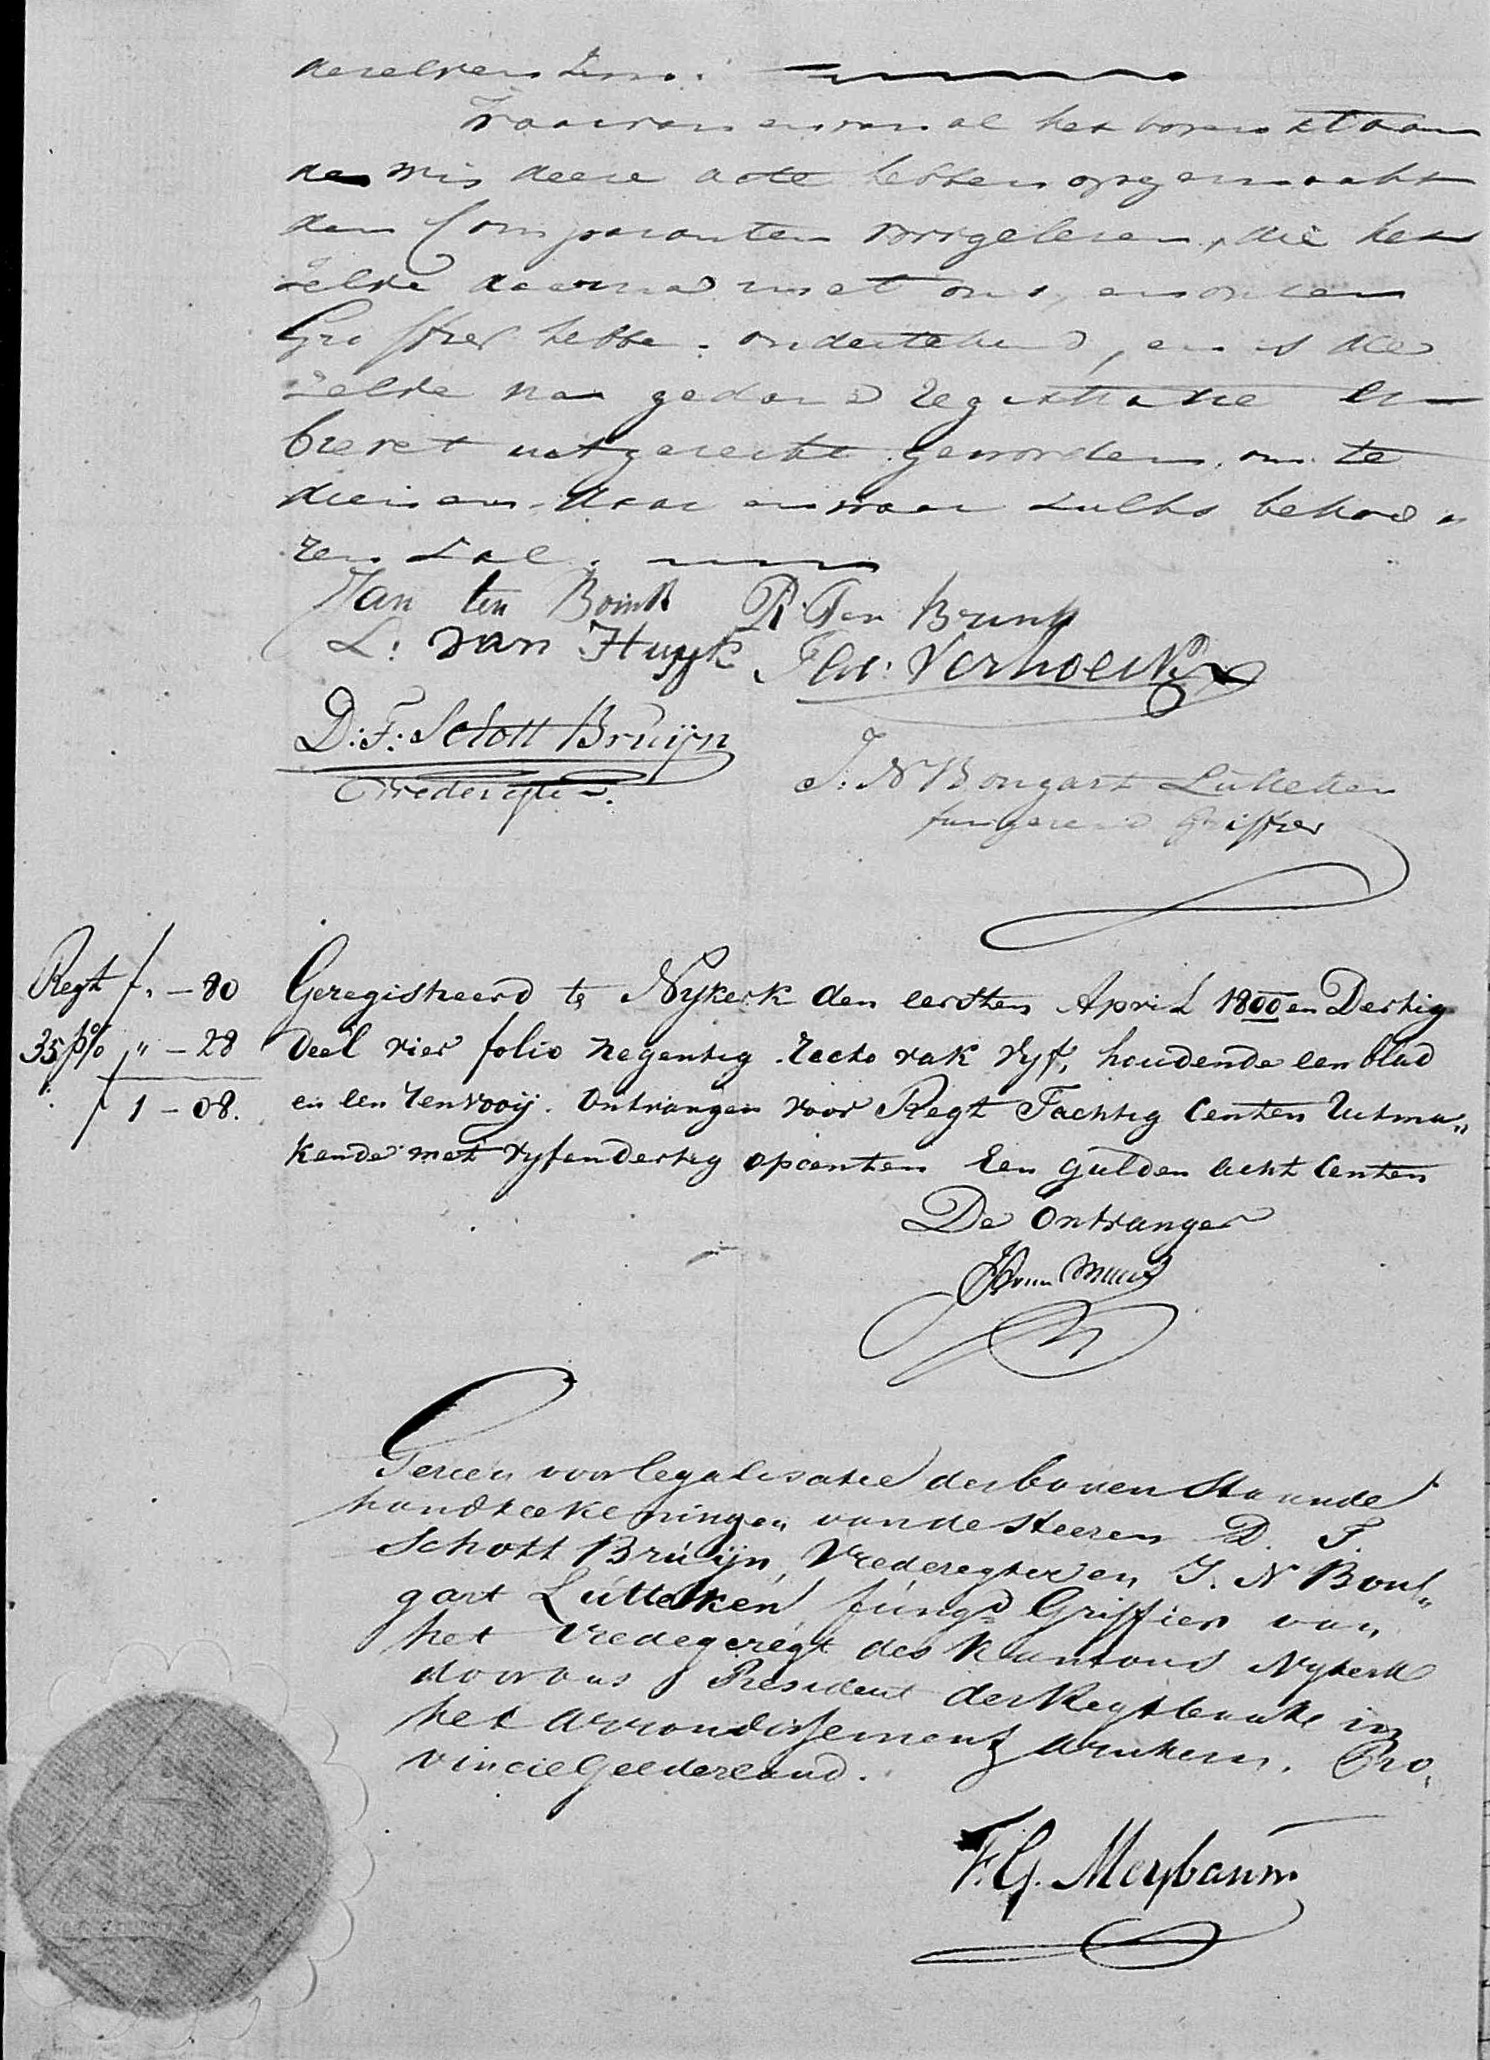 derzelver km.
Waarvan en van al het bovenstaan
de wij deeze acte hebben opgemaakt
den Comparanten voorgelezen, die het
zelve daarna met ons, en onzen
Griffier hebben ondertekend, en is de
zelve na gedane registratie in
brevet uitgereikt geworden, om te
dienen daar en waar zulks behoo„
ren zal.
Jan ten Boink R. Ten Brink
L: van Huyk Verhoeik
D: F: Schott Bruijn
Vrederegter.
J: N Bongart Lutteken
fungerend Griffier
Regt f „ – 80 Geregistreerd te Nykerk den eersten April 1800 en Dertig
35 pC/o „ – 28 deel vier folio negentig recto vak vyf, houdende een blad
f 1 – 08. en een renvooij. Ontvangen voor Regt Tachtig Centen Uitma„
kende met vyfendertig opcenten Een gulden acht Centen
De Ontvanger
Gezien voor legalisatie der boven staande
handteekeningen van de Heeren D. F.
Schott Bruijn, Vrederegter en J. N Bon„
gart Lutteken fungd Griffier van
het Vredegeregt des Kantons Nykerk
door ons President der Regtbank in
het arrondissement Arnhem, Pro„
vincie Gelderland.
F. G. Meybaum